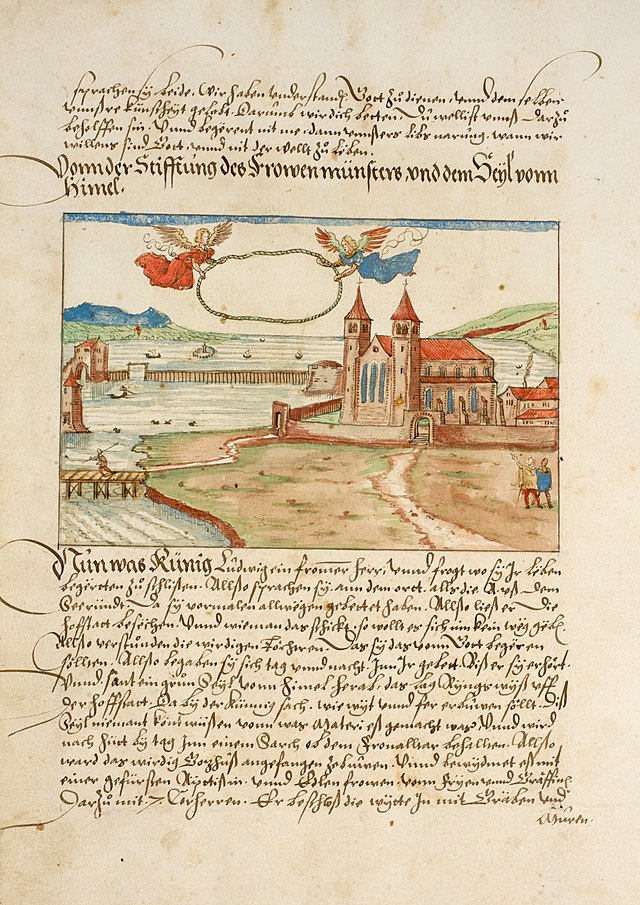 sprachen sy beide. Wir haben understand, Gott zu dienen, vnnd dem selben
vnnsre künscheyt gelobt. Darumb wir dich betten, Du wellist vnnß darzu
beholffen sin, Vnnd begerent nit me, dann vnnsers libs narung, wann wir
willens sind Gott, vnnd nit der wellt zu leben.
Vonn der Stifftung des Frowenmünsters, vnd dem Seyl vonn
Himel.
Nun was Künig Ludwig ein fromer herr, vnnd fragt wo sy Ir leben
begerten zu schlissen. Allso sprachen sy, ann dem orrt, alls die A vß dem
See rünnt, Da sy vormalen allwegen gebettet haben. Allso ließ er die
hoffstatt besechen, Vnnd wie man das schickt, so wollt es sich inn kein weg geben.
Allso verstunden die wirdigen Töchteren, Das sy das vonn Gott begeren
söllten. Allso begaben sy sich tag vnnd nacht, Inn Ir gebett, Biß er sy erhört.
Vnnd sant ein grün Seyl vonn himel herab, das lag Ryngs wyß vff
der hoffstatt, Da by der Künnig sach, wie wyt vnnd fer er buwen söllt. Diß
Seyl niemant könt wüssen vonn was Matery es gemacht was, Vnnd wird
noch hüt by tag Inn einem Sarch ob dem Fronalltar behallten. Allso
ward das wirdig Gotzhuß angefangen zebuwen, Vnnd bewydmet es mit
einer gefürsten Äpttissin, vnnd Edlen frowen vonn Fryen vnnd Gräffin,
Darzu mit 7. Corherren. Er beschloß die wytte In mit Gräben vnd
Muren.